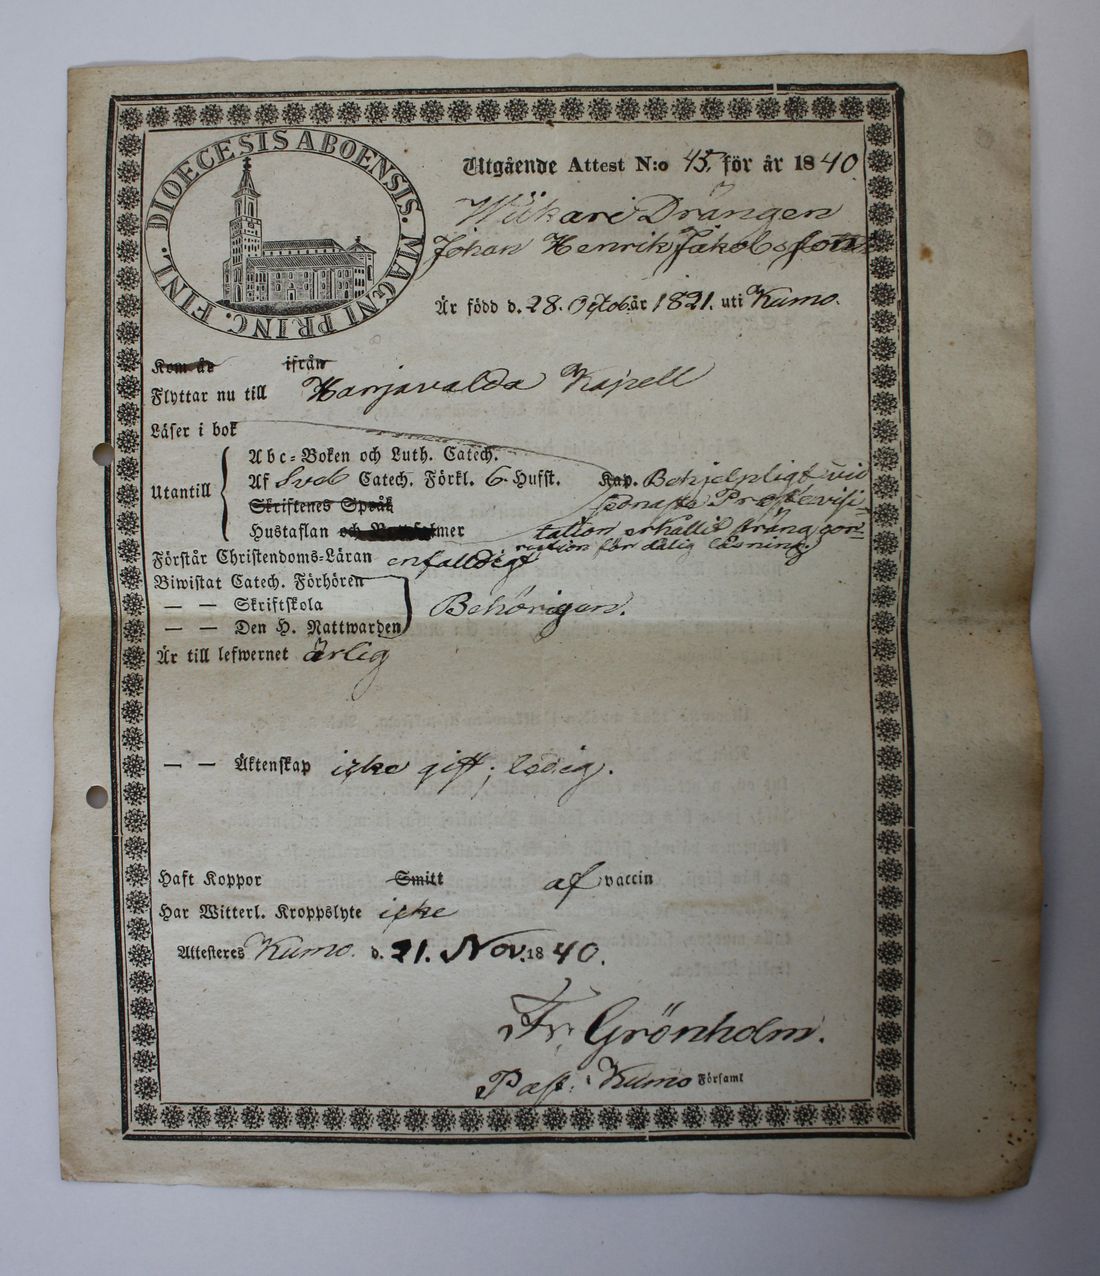 DIOECESIS ABOENSIS. MAGNI PRINC. FINL.
Utgående Attest N:o 45. för år 1840.
Wiikari Drängen
Johan Henrik Jakobsson
Är född d. 28. Octob. år 1821. uti Kumo.
Kom år ifrån
Flyttar nu till Harjavalda Kapell
Läser i bok
Utantill
Abc-Boken och Luth. Catech.
Af Sveb Catech. Förkl. 6 Hufst. Kap. Behjelpligt vid
Skriftenes Språk sednaste Prostevisi-
Hustaflan och mer tation erhållit sträng cor-
rection för dålig läsning.
Förstår Christendoms-Läran enfalldigt
Biwistat Catech. Förhören
— — Skriftskola
— — Den H. Nattwarden
Behörigen.
Är till lefwernet ärlig
— — Äktenskap icke gift; ledig.
Haft Koppor Smitt af vaccin
Har Witterl. Kroppslyte icke
Attesteres Kumo. d. 21. Nov. 1840.
Fr. Grönholm.
Past. i Kumo Församl